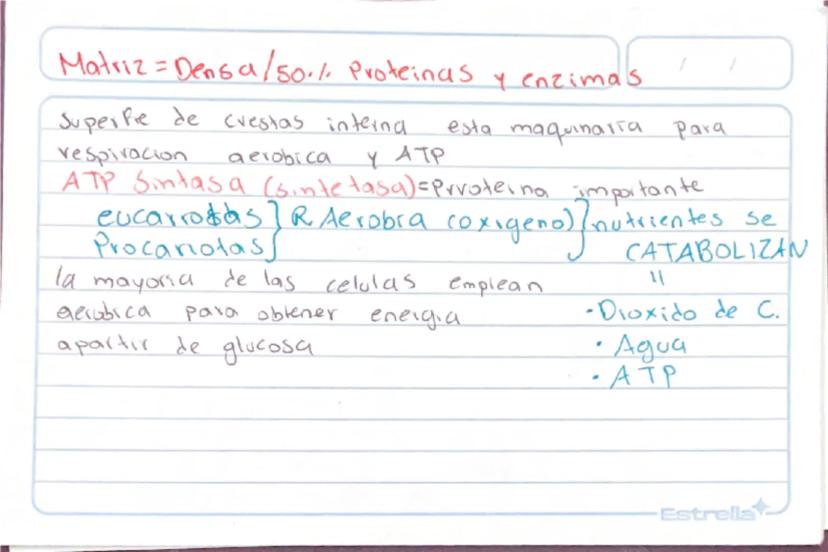 Matriz = Densa/50% Proteinas y enzimas
/ /
superfie de crestas interna esta maquinaria para
respiracion aerobica y ATP
ATP Sintasa (sintetasa) = Prvoteina importante
eucarrotas } R Aerobia (oxigeno) } nutrientes se
Procariotas CATABOLIZAN
la mayoria de las celulas emplean "
aerobica para obtener energia · Dioxido de C.
apartir de glucosa · Agua
· ATP
Estrella